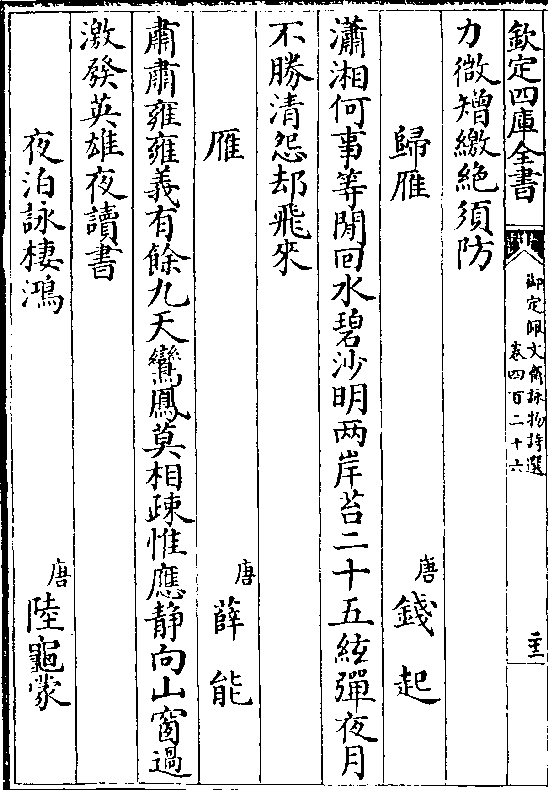 欽定四庫全書
御定佩文齋詠物詩選
卷四百二十六
力微矰繳絶須防
歸雁
唐
錢起
瀟湘何事等閒回水碧沙明两岸苔二十五絃彈夜月
不勝清怨却飛來
雁
唐
薛能
肅肅雍雍義有餘九天鸞鳳莫相疎惟應静向山窗過
激發英雄夜讀書
夜泊詠棲鴻
唐
陸龜蒙